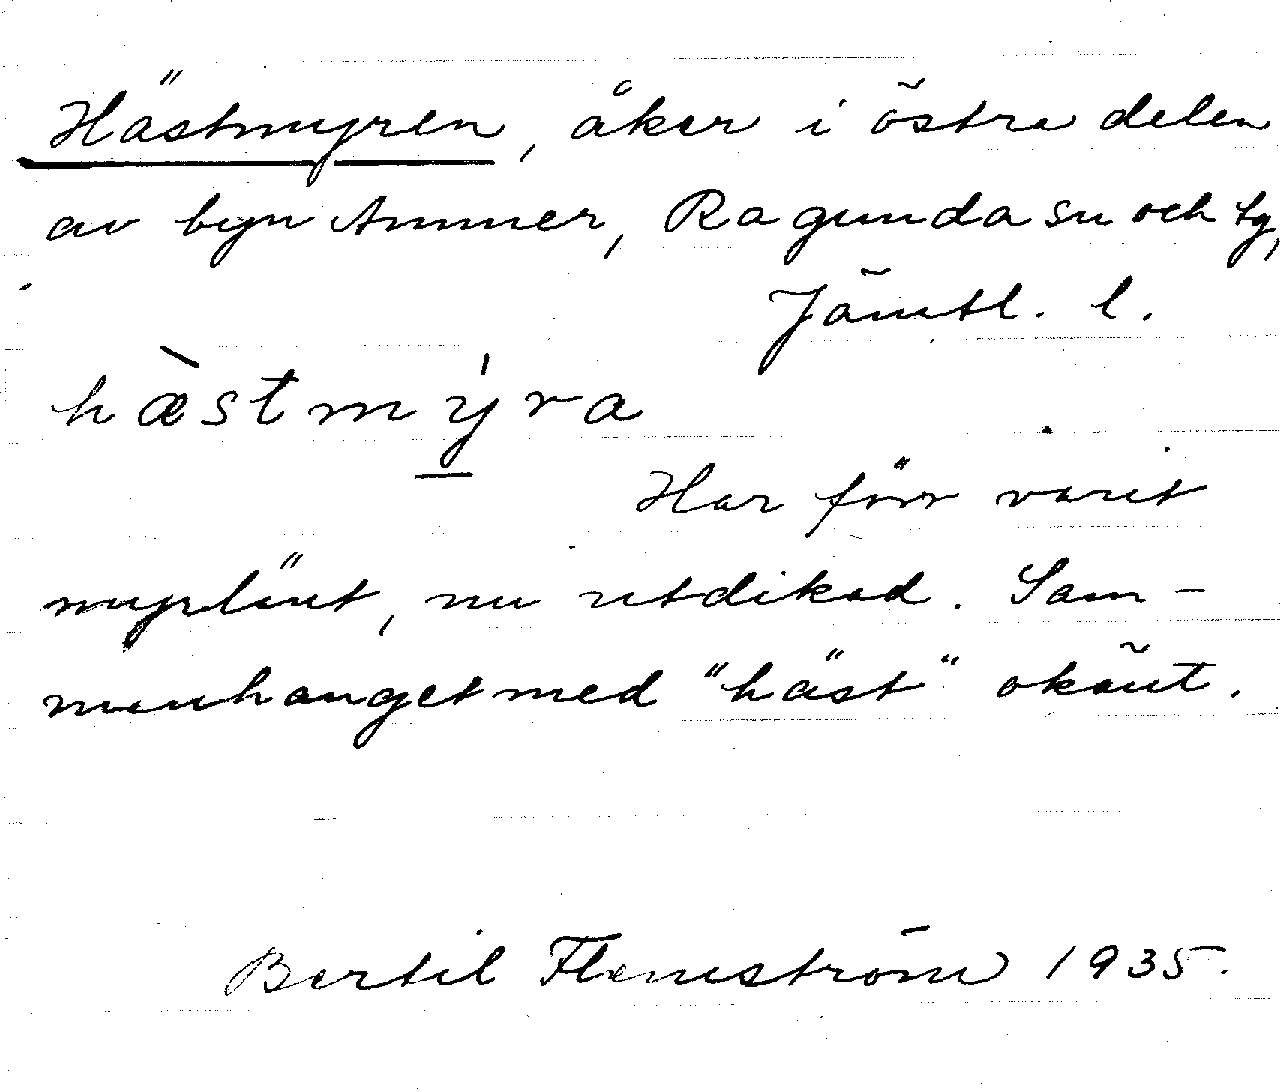 Hästmyren, åker i östra delen
av byn Ammer, Ragunda sn och tg,
Jämtl. l.
hæ̀stmý̱ra
Har förr varit
myrlänt, nu utdikad. Sam-
manhanget med "häst" okänt.
Bertil Flemström 1935.